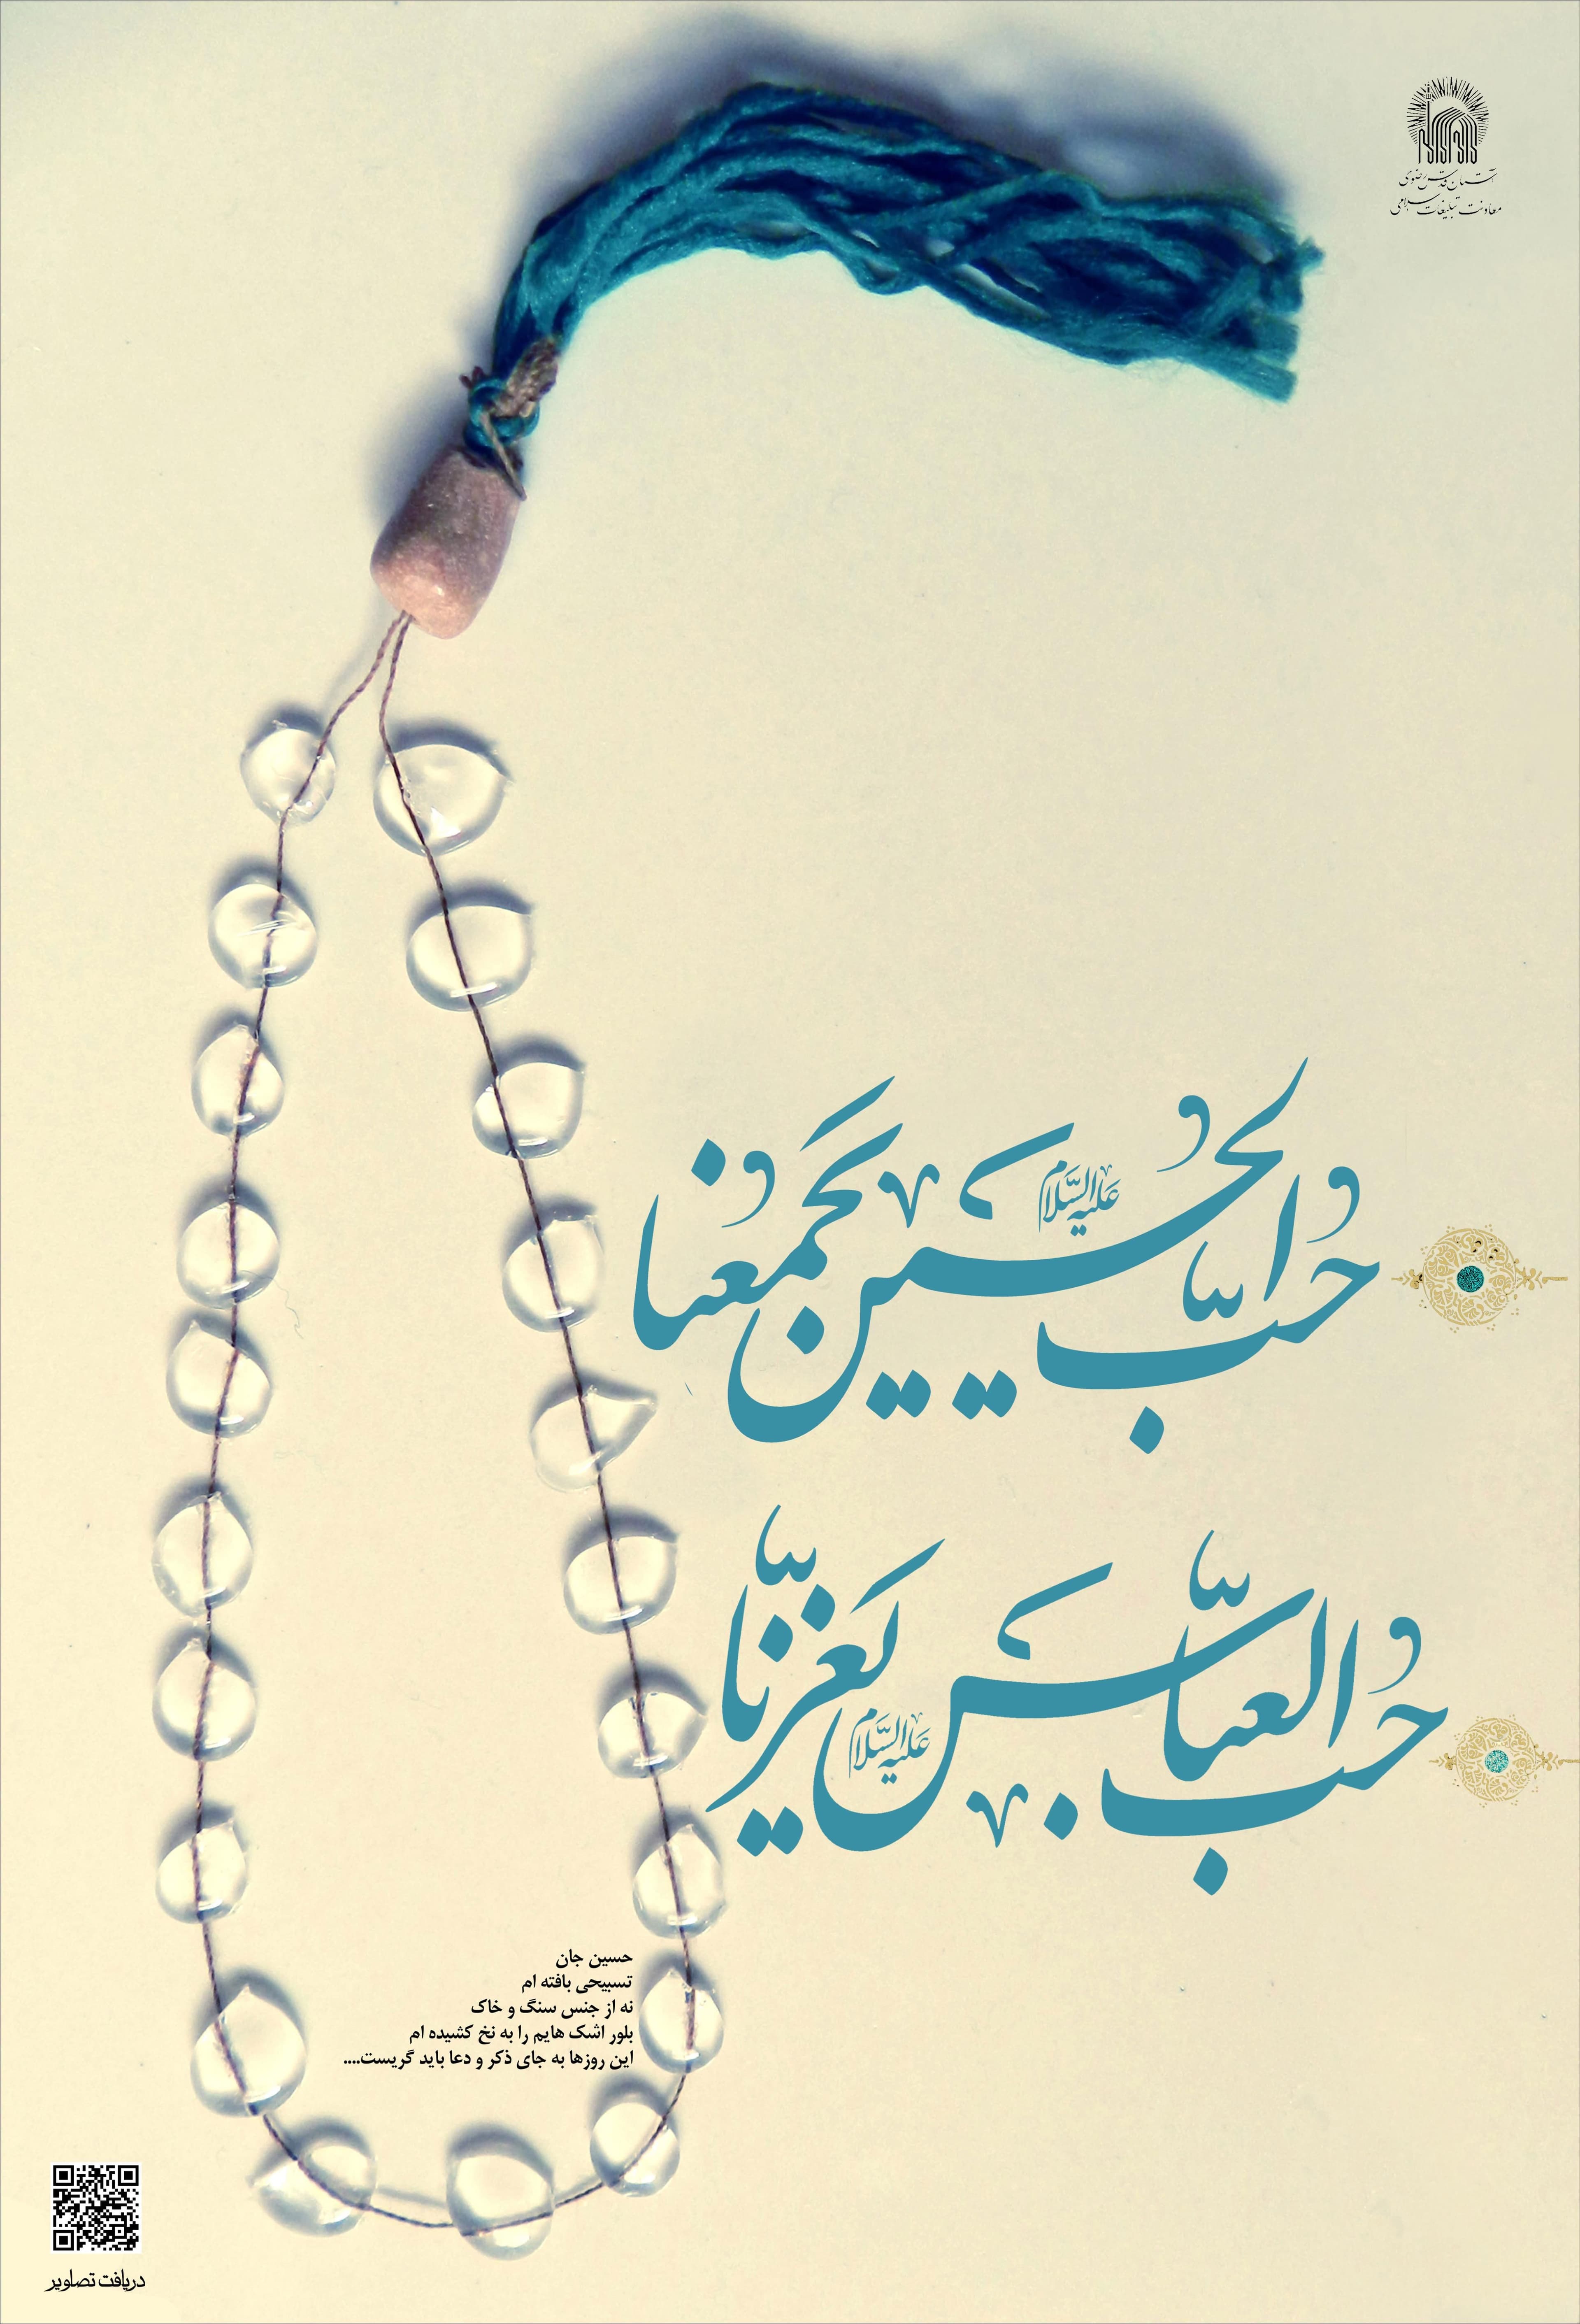 آستان قدس رضوی
معاونت تبلیغات اسلامی
حُبُّ الحُسَین علیه السلام یَجمَعُنا
حُبُّ العبّاس علیه السلام یَعِزُنّا
حسین جان
تسبیحی بافته ام
نه از جنس سنگ و خاک
بلور اشک هایم را به نخ کشیده ام
این روزها به جای ذکر و دعا باید گریست....
دریافت تصاویر